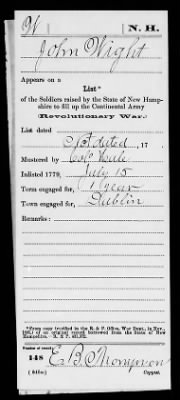 W | N. H.
John Wight
Appears on a
List*
of the Soldiers raised by the State of New Hamp-
shire to fill up the Continental Army
(Revolutionary War.)
List dated
Not dated, 17
Mustered by Col Hale
Inlisted 1779, July 15
Term engaged for, 1 year
Town engaged for, Dublin
Remarks:
*From copy (verified in the R. & P. Office, War Dept., in Nov.,
of an original record borrowed from the State of New
Hampshire.—R. & P.
Number of record:
148 E. B. Thompson
Copyist.